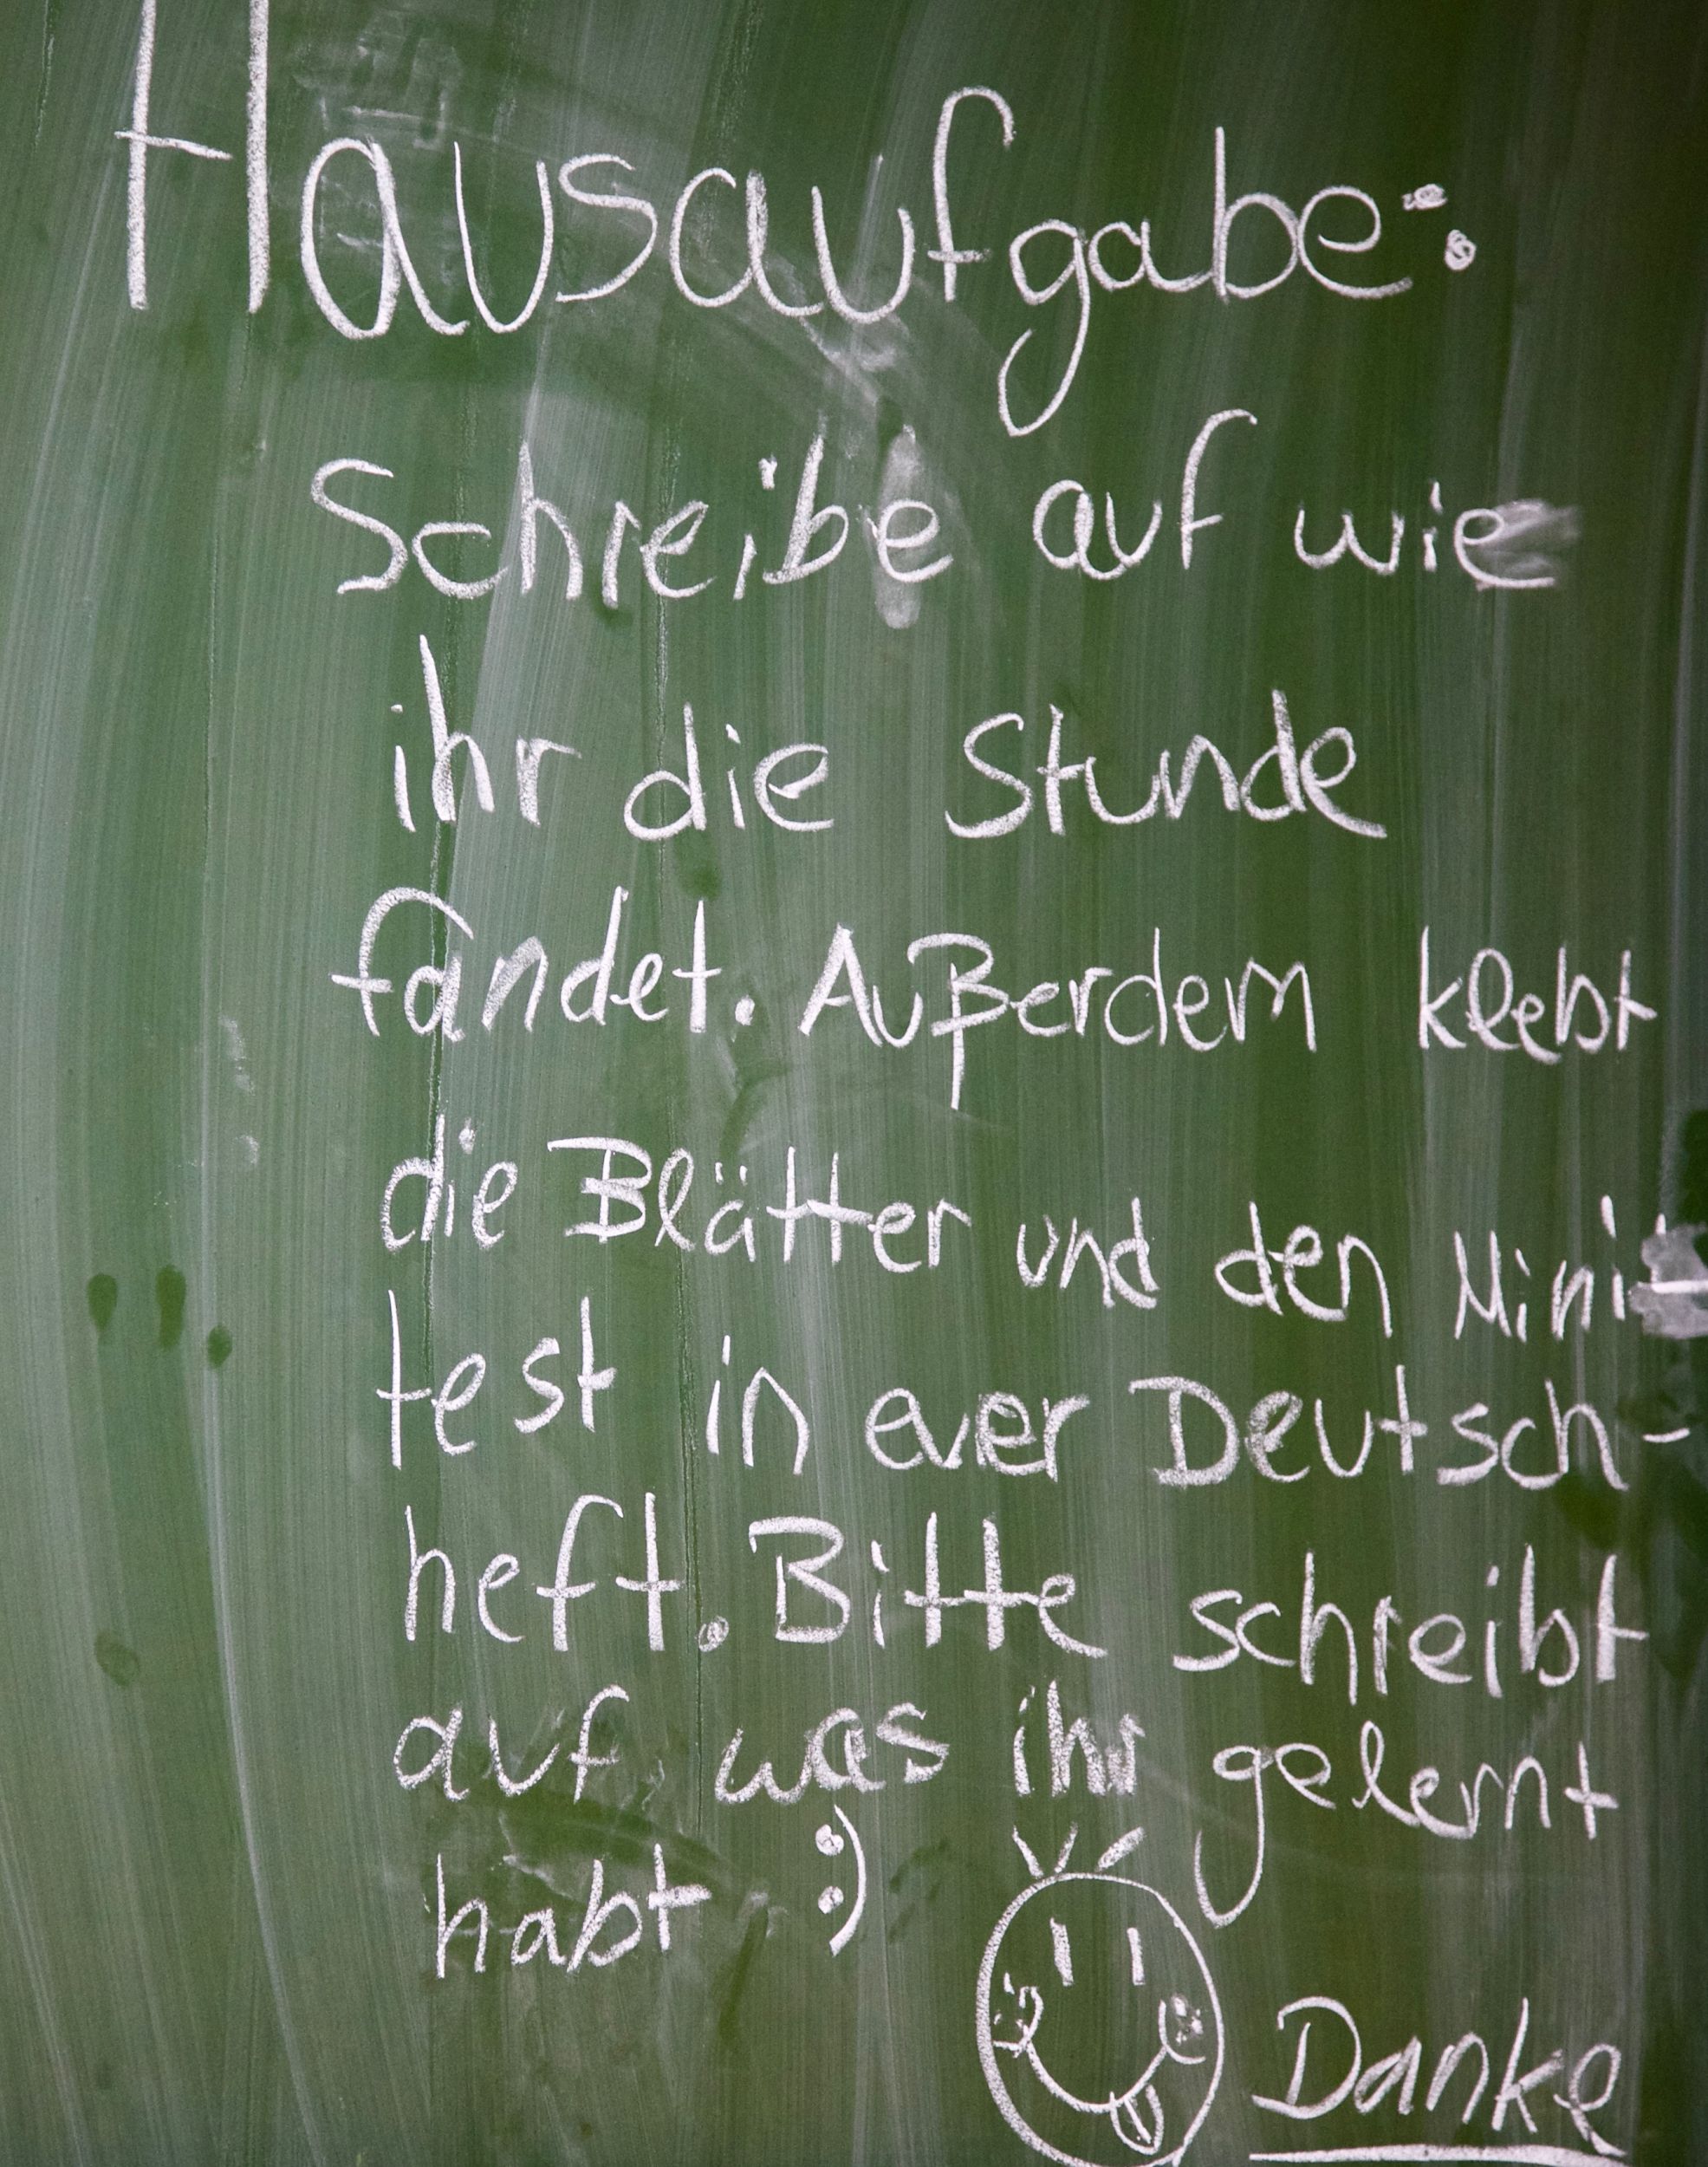 Hausaufgabe:
Schreibe auf wie
ihr die Stunde
fandet. Außerdem klebt
die Blätter und den Mini-
test in euer Deutsch-
heft. Bitte schreibt
auf was ihr gelernt
habt :)
Danke